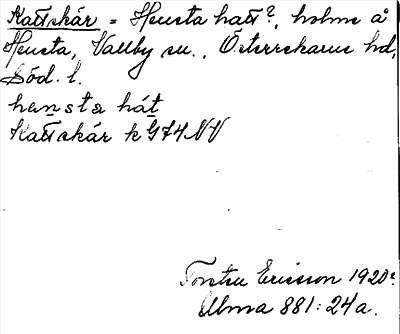 Kattskär = Hensta hatt?, holme å
Hensta, Vallby sn., Österrekarne hd,
Söd. l.
hensta hát
Kattskär k G74NV
Torsten Ericsson 1920?
Ulma 881:24a.